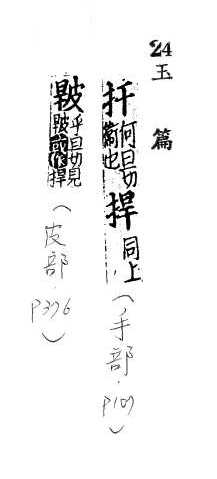 24 玉篇
扞 何旦切 衛也 捍 同上 (手部.
乎旦切見 或作捍 (皮部. P376)